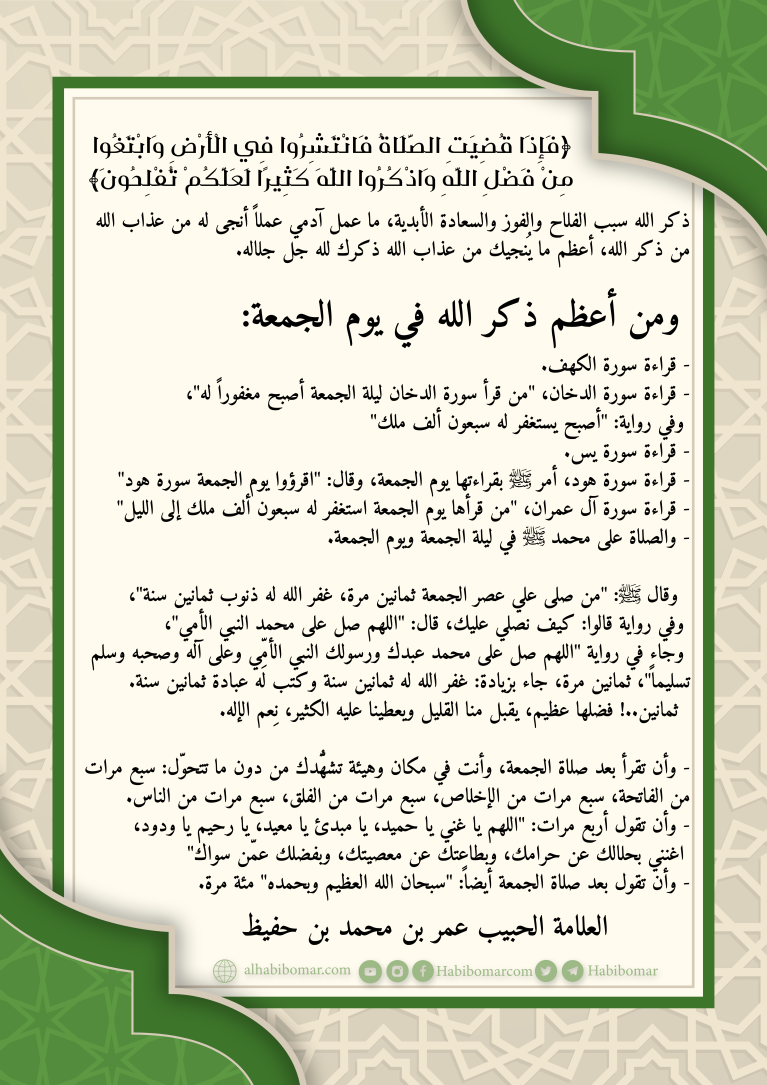 ﴿فَإِذَا قُضِيَتِ الصَّلَاةُ فَانْتَشِرُوا فِي الْأَرْضِ وَابْتَغُوا
مِنْ فَضْلِ اللَّهِ وَاذْكُرُوا اللَّهَ كَثِيرًا لَعَلَّكُمْ تُفْلِحُونَ﴾
ذكر الله سبب الفلاح والفوز والسعادة الأبدية، ما عمل آدمي عملاً أنجى له من عذاب الله
من ذكر الله، أعظم ما يُنجيك من عذاب الله ذكرك لله جل جلاله.
ومن أعظم ذكر الله في يوم الجمعة:
- قراءة سورة الكهف.
- قراءة سورة الدخان، "من قرأ سورة الدخان ليلة الجمعة أصبح مغفوراً له"،
وفي رواية: "أصبح يستغفر له سبعون ألف ملك"
- قراءة سورة يس.
- قراءة سورة هود، أمر ﷺ بقراءتها يوم الجمعة، وقال: "اقرؤوا يوم الجمعة سورة هود"
- قراءة سورة آل عمران، "من قرأها يوم الجمعة استغفر له سبعون ألف ملك إلى الليل"
- والصلاة على محمد ﷺ في ليلة الجمعة ويوم الجمعة.
وقال ﷺ: "من صلى علي عصر الجمعة ثمانين مرة، غفر الله له ذنوب ثمانين سنة"،
وفي رواية قالوا: كيف نصلي عليك، قال: "اللهم صل على محمد النبي الأمي"،
وجاء في رواية "اللهم صل على محمد عبدك ورسولك النبي الأمّي وعلى آله وصحبه وسلم
تسليماً"، ثمانين مرة، جاء بزيادة: غفر الله له ثمانين سنة وكتب له عبادة ثمانين سنة.
ثمانين..! فضلها عظيم، يقبل منا القليل ويعطينا عليه الكثير، نِعم الإله.
- وأن تقرأ بعد صلاة الجمعة، وأنت في مكان وهيئة تشهُّدك من دون ما تتحوّل: سبع مرات
من الفاتحة، سبع مرات من الإخلاص، سبع مرات من الفلق، سبع مرات من الناس.
- وأن تقول أربع مرات: "اللهم يا غني يا حميد، يا مبدئ يا معيد، يا رحيم يا ودود،
اغنني بحلالك عن حرامك، وبطاعتك عن معصيتك، وبفضلك عمّن سواك"
- وأن تقول بعد صلاة الجمعة أيضاً: "سبحان الله العظيم وبحمده" مئة مرة.
العلامة الحبيب عمر بن محمد بن حفيظ
alhabibomar.com Habibomarcom Habibomar